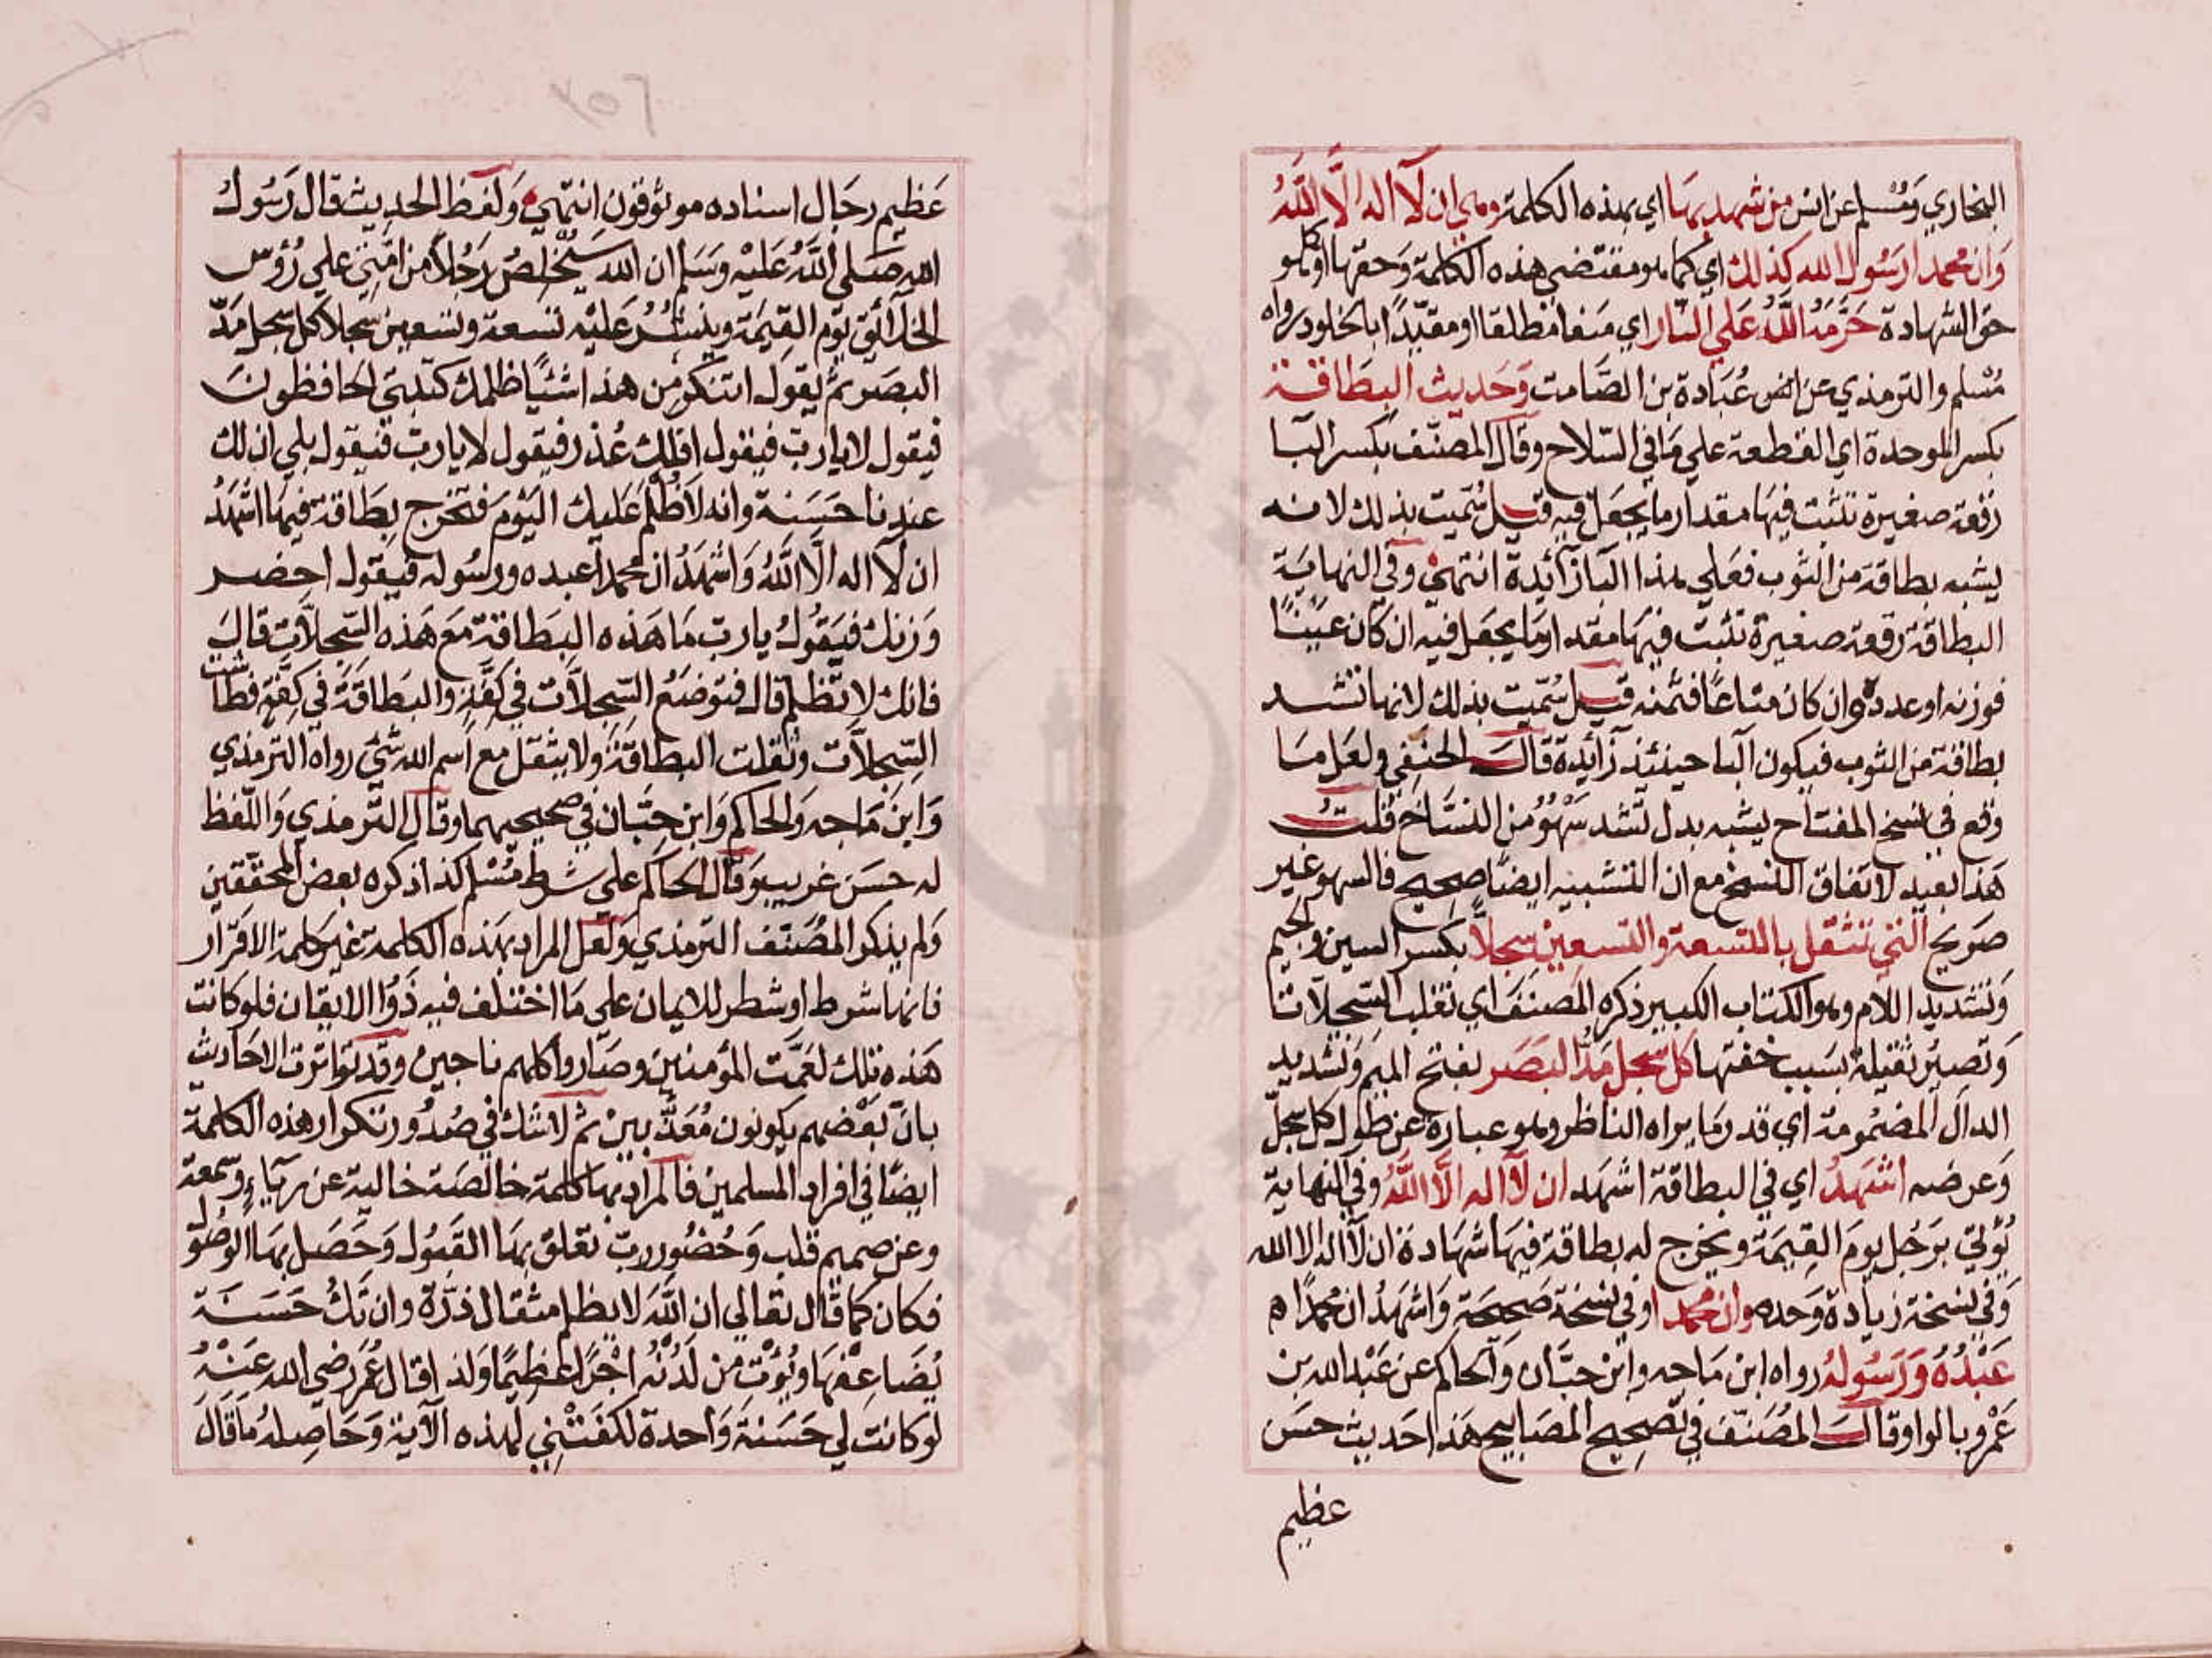 البخاري ومسلم عن انس من شهد بها اي بهذه الكلمة وهي ان لا اله الا الله
وان محمدا رسول الله كذلك اي كما هو مقتضى هذه الكلمة وحقها او كما هو
حق الشهادة حرمه الله علي النار اي منعا مطلقا او مقيدا بالخلود رواه
مسلم والترمذي عن عبادة بن الصامت وحديث البطاقة
بكسر الموحدة اي القطعة علي ما في السلاح وقال المصنف بكسر البا
رقعة صغيرة تثبت فيها مقدار ما يجعل فيه قيل سميت بذلك لانه
يشبه بطاقة من الثوب فعلي هذا البا زائدة انتهي وفي النهاية
البطاقة رقعة صغيرة تثبت فيها مقدار ما يجعل فيه ان كان عينا
فوزنه او عدده وان كان متاعا فثمنه قيل سميت بذلك لانها تشد
بطاقة من الثوب فيكون البا حينئذ زائدة قال الحنفي ولعل ما
وقع في نسخ المفتاح يشبه بدل تشد سهو من النساخ قلت
هذا بعيد لاتفاق النسخ مع ان التشبيه ايضا صحيح فالسهو غير
صريح التي تثقل بالتسعة والتسعين سجلا بكسر السين والجيم
وتشديد اللام وهو الكتاب الكبير ذكره المصنف اي تغلب السجلات
وتصير ثقيلة بسبب خفتها كل سجل مد البصر بفتح الميم وتشديد
الدال المضمومة اي قدر ما يراه الناظر وهو عبارة عن طول كل سجل
وعرضه اشهد اي في البطاقة اشهد ان لا اله الا الله وفي النهاية
يؤتي برجل يوم القيمة ويخرج له بطاقة فيها شهادة ان لا اله الا الله
وفي نسخة زيادة وحده وان محمدا وفي نسخة صحيحة واشهد ان محمدا
عبده ورسوله رواه ابن ماجه وابن حبان والحاكم عن عبد الله بن
عمرو بالواو قال المصنف في تصحيح المصابيح هذا حديث حسن
عظيم
عظيم رجال اسناده موثوقون انتهي ولفظ الحديث قال رسول
الله صلى الله عليه وسلم ان الله سيخلص رجلا من امتي علي رؤس
الخلائق يوم القيمة وينشر عليه تسعة وتسعين سجلا كل سجل مد
البصر ثم يقول اتنكر من هذا شيئا اظلمك كتبتي الحافظون
فيقول لا يارب فيقول افلك عذر فيقول لا يارب فيقول بلي ان لك
عندنا حسنة وانه لا ظلم عليك اليوم فتخرج بطاقة فيها اشهد
ان لا اله الا الله واشهد ان محمدا عبده ورسوله فيقول احضر
وزنك فيقول يارب ما هذه البطاقة مع هذه السجلات قال
فانك لا تظلم قال فتوضع السجلات في كفة والبطاقة في كفة فطاشت
السجلات وثقلت البطاقة ولا يثقل مع اسم الله شئ رواه الترمذي
وابن ماجه والحاكم وابن حبان في صحيحيهما وقال الترمذي واللفظ
له حسن غريب وقال الحاكم علي شرط مسلم كذا ذكره بعض المحققين
ولم يذكر المصنف الترمذي ولعل المراد بهذه الكلمة غير كلمة الاقرار
فانها شرط او شطر للايمان علي ما اختلف فيه ذووا الايقان فلو كانت
هذه تلك لعمت المؤمنين وصاروا كلهم ناجين وقد تواترت الاحاديث
بان بعضهم يكونون معذبين ثم لا شك في صدور تكرار هذه الكلمة
ايضا في افراد المسلمين فالمراد بها كلمة خالصة خالية عن رياء وسمعة
وعن صميم قلب وحضور رب تعلق بها القبول وحصل بها الوصول
فكان كما قال تعالي ان الله لا يظلم مثقال ذرة وان تك حسنة
يضاعفها ويؤت من لدنه اجرا عظيما ولذا قال عمر رضي الله عنه
لو كانت لي حسنة واحدة لكفتني لهذه الآية وحاصله ما قال